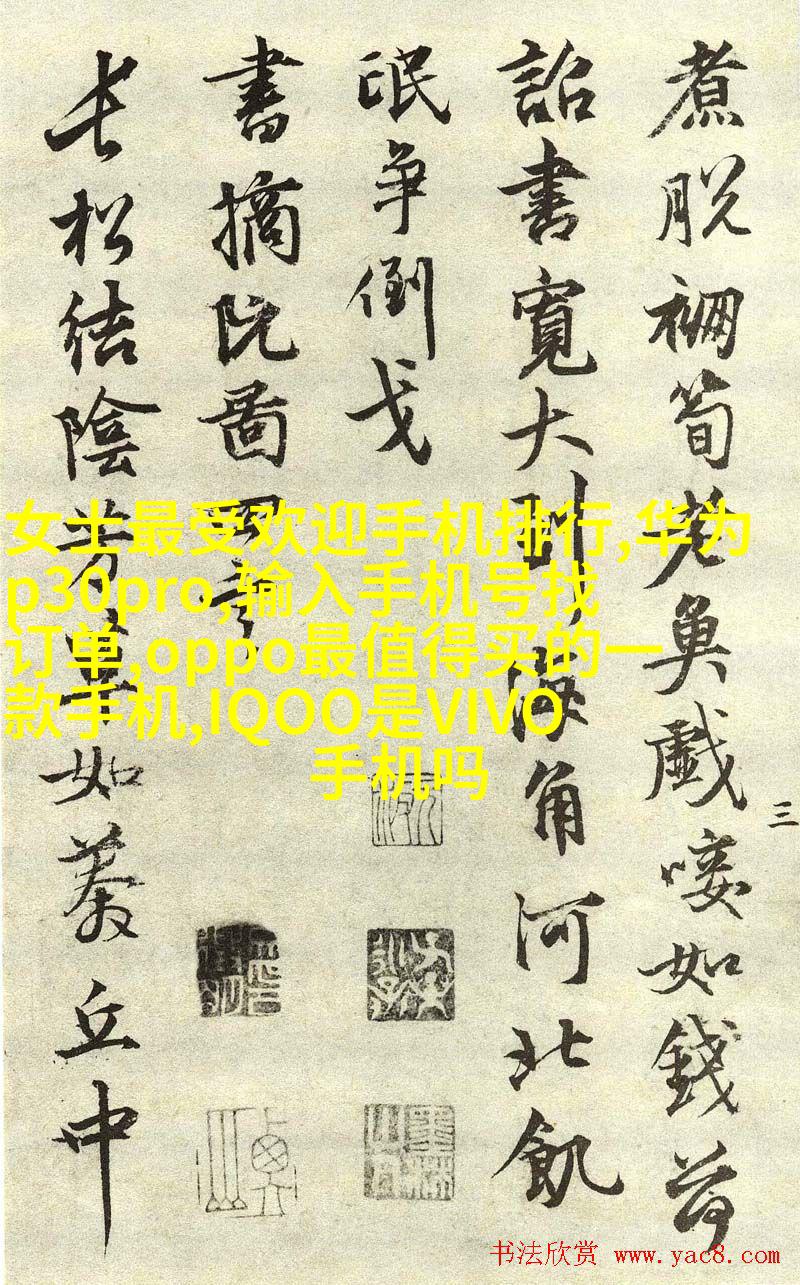 煮脱筍老魚戲唼如錢荷
詔書寬大到海角河北飢
氓争倒戈
書摘阮啚
長松结陰芳如丘中
三
女士最受欢迎手机排行,华为
p30pro,输入手机号找
订单,oppo最值得买的一
款手机,IQOO是VIVO
手机吗
书法欣赏 www.yac8.com